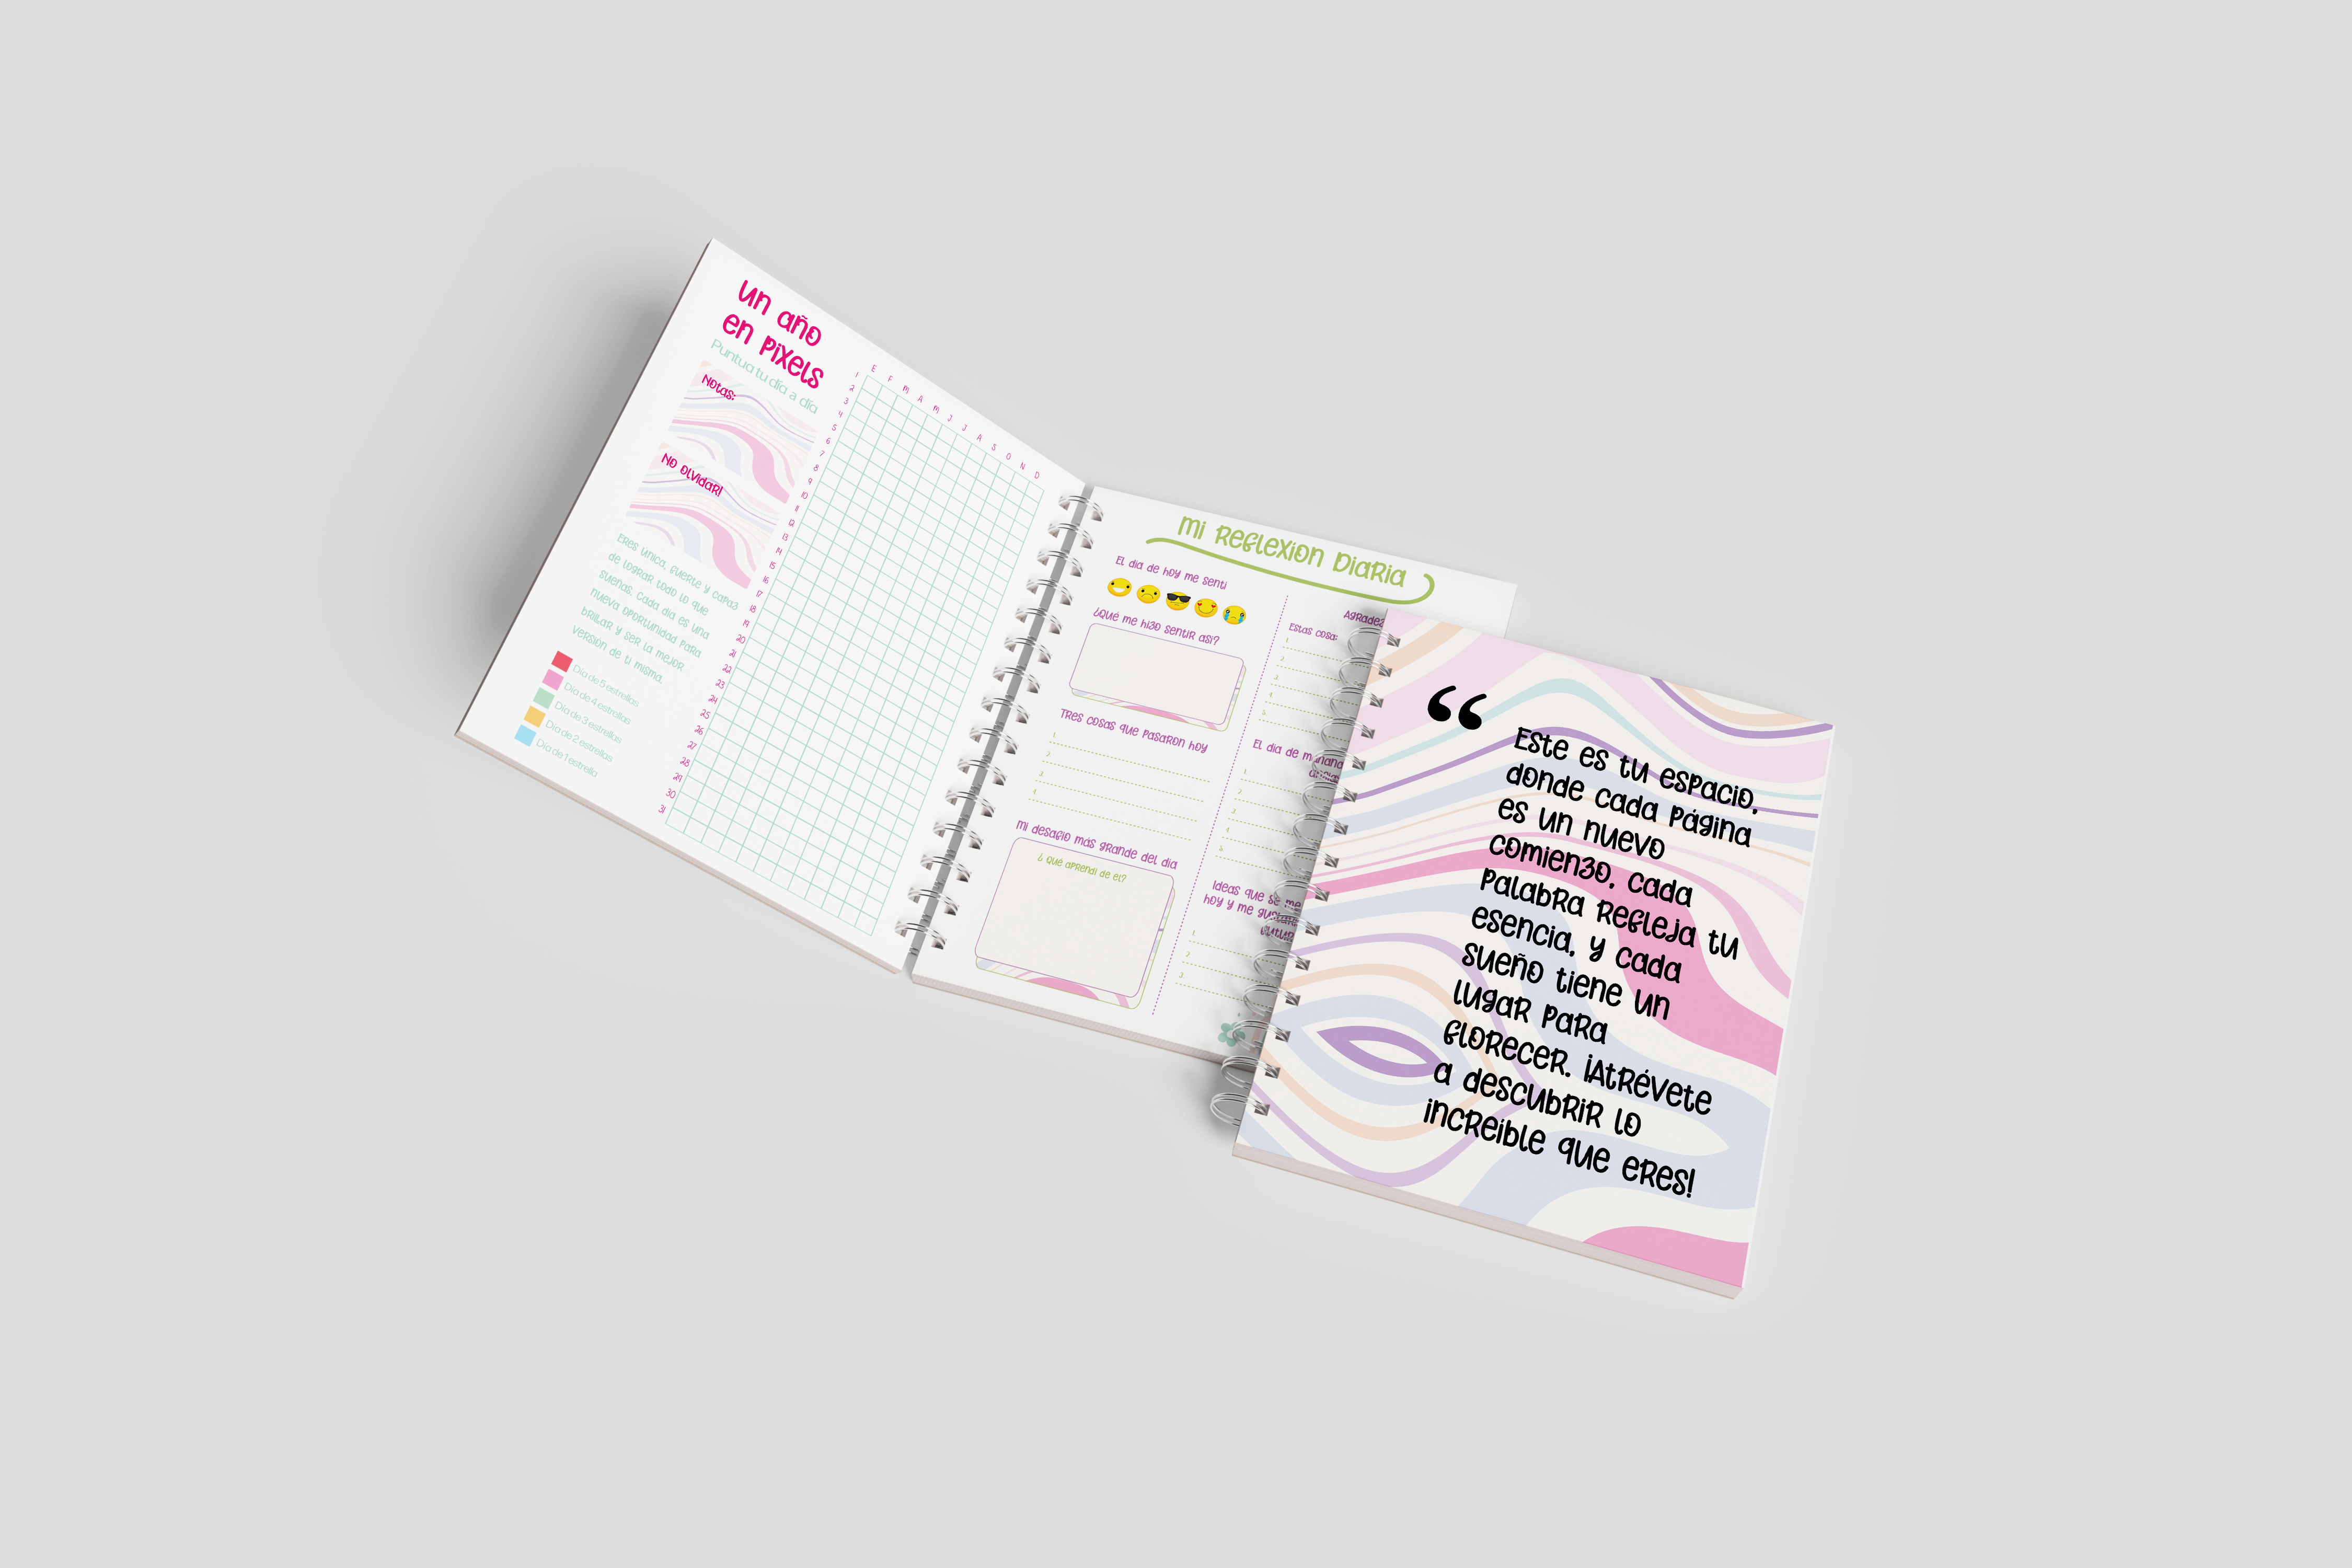 un año
en pixels
Puntua tu día a día
Notas:
No olvidar!
Eres unica, fuerte y capaz
de lograr todo lo que
sueñas. Cada dia es una
nueva oportunidad para
brillar y ser la mejor
version de ti misma.
Día de 5 estrellas
Día de 4 estrellas
Día de 3 estrellas
Día de 2 estrellas
Día de 1 estrella
E F M A M J J A S O N D
1
2
3
4
5
6
7
8
9
10
11
12
13
14
15
16
17
18
19
20
21
22
23
24
25
26
27
28
29
30
31
Mi Reflexion Diaria
El dia de hoy me senti
¿Qué me hizo sentir asi?
Tres cosas que pasaron hoy
1.
2.
3.
4.
Mi desafio más grande del dia
¿ Que aprendi de el?
Estas cosa:
1.
2.
3.
4.
5.
El dia de mañana
1.
2.
3.
4.
5.
Ideas que se me
hoy y me
1.
2.
3.
“
Este es tu espacio,
donde cada página
es un nuevo
comienzo, cada
palabra refleja tu
esencia, y cada
sueño tiene un
lugar para
florecer. ¡Atrévete
a descubrir lo
increible que eres!